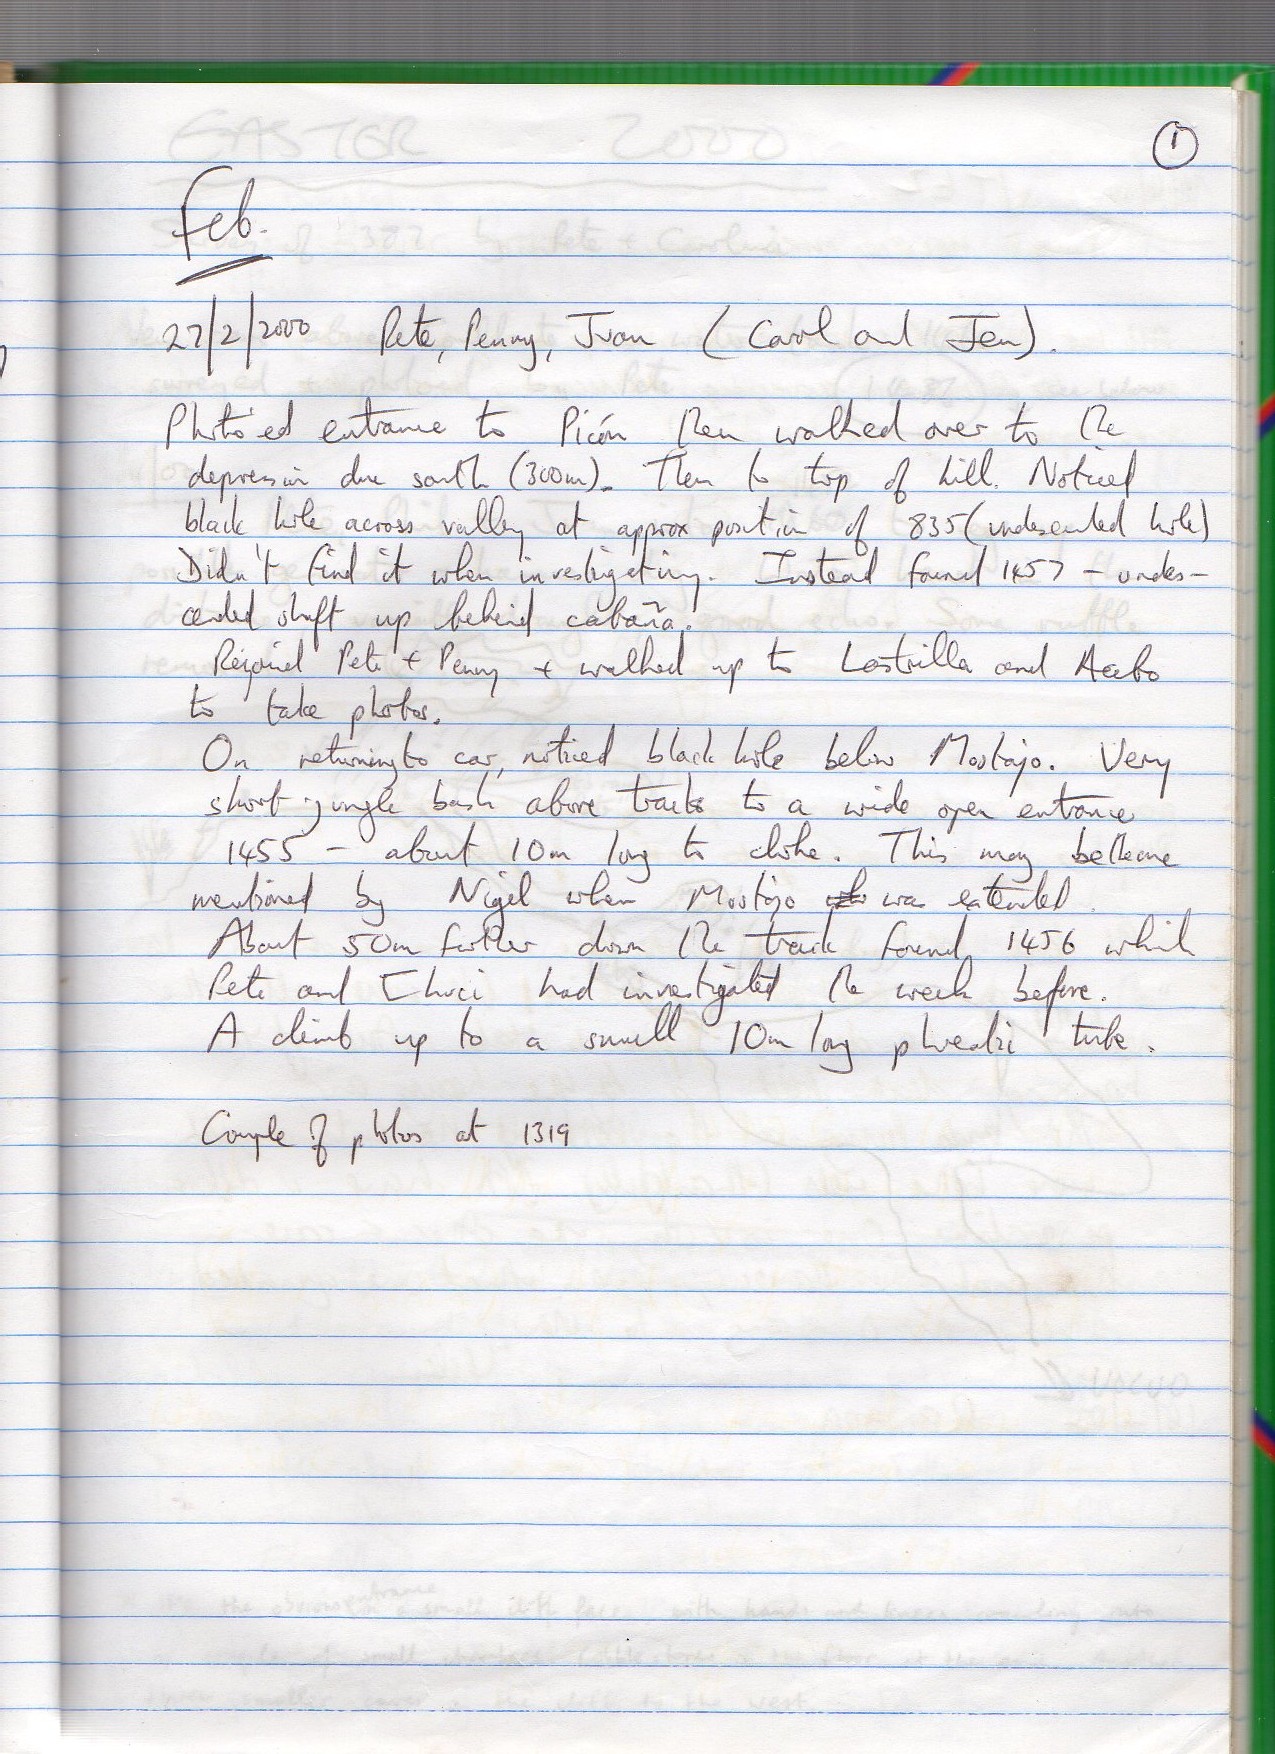 1
Feb.
27/2/2000 Pete, Penny, Juan (Carol and Jen).
Photo'ed entrance to Picón then walked over to the
depression due south (300m). Then to top of hill. Noticed
black hole across valley at approx position of 835 (undescended hole)
Didn't find it when investigating. Instead found 1457 - undes-
cended shaft up behind cabaña.
Rejoined Pete + Penny + walked up to Lastrilla and Acebo
to take photos.
On returning to car, noticed black hole below Mostajo. Very
short jungle bash above track to a wide open entrance
1455 - about 10m long to choke. This may be the one
mentioned by Nigel when Mostajo was extended.
About 50m further down the track found 1456 which
Pete and Chuci had investigated the week before.
A climb up to a small 10m long phreatic tube.
Couple of photos at 1319